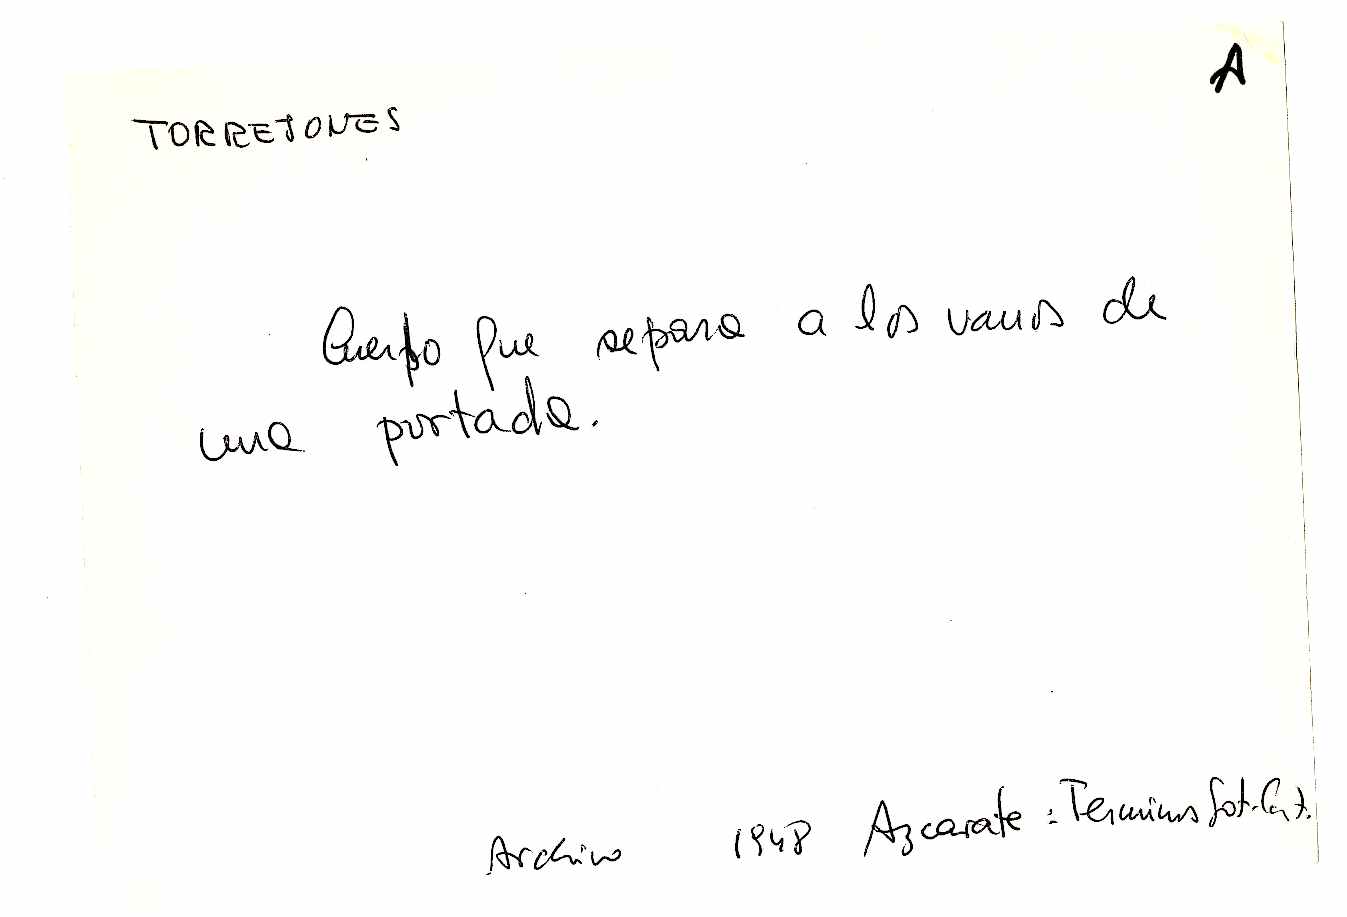 A
TORREJONES
Cuerpo que separa a los vanos de
una portada.
Archivo 1948 Azcarate: Terminos Got. Cast.